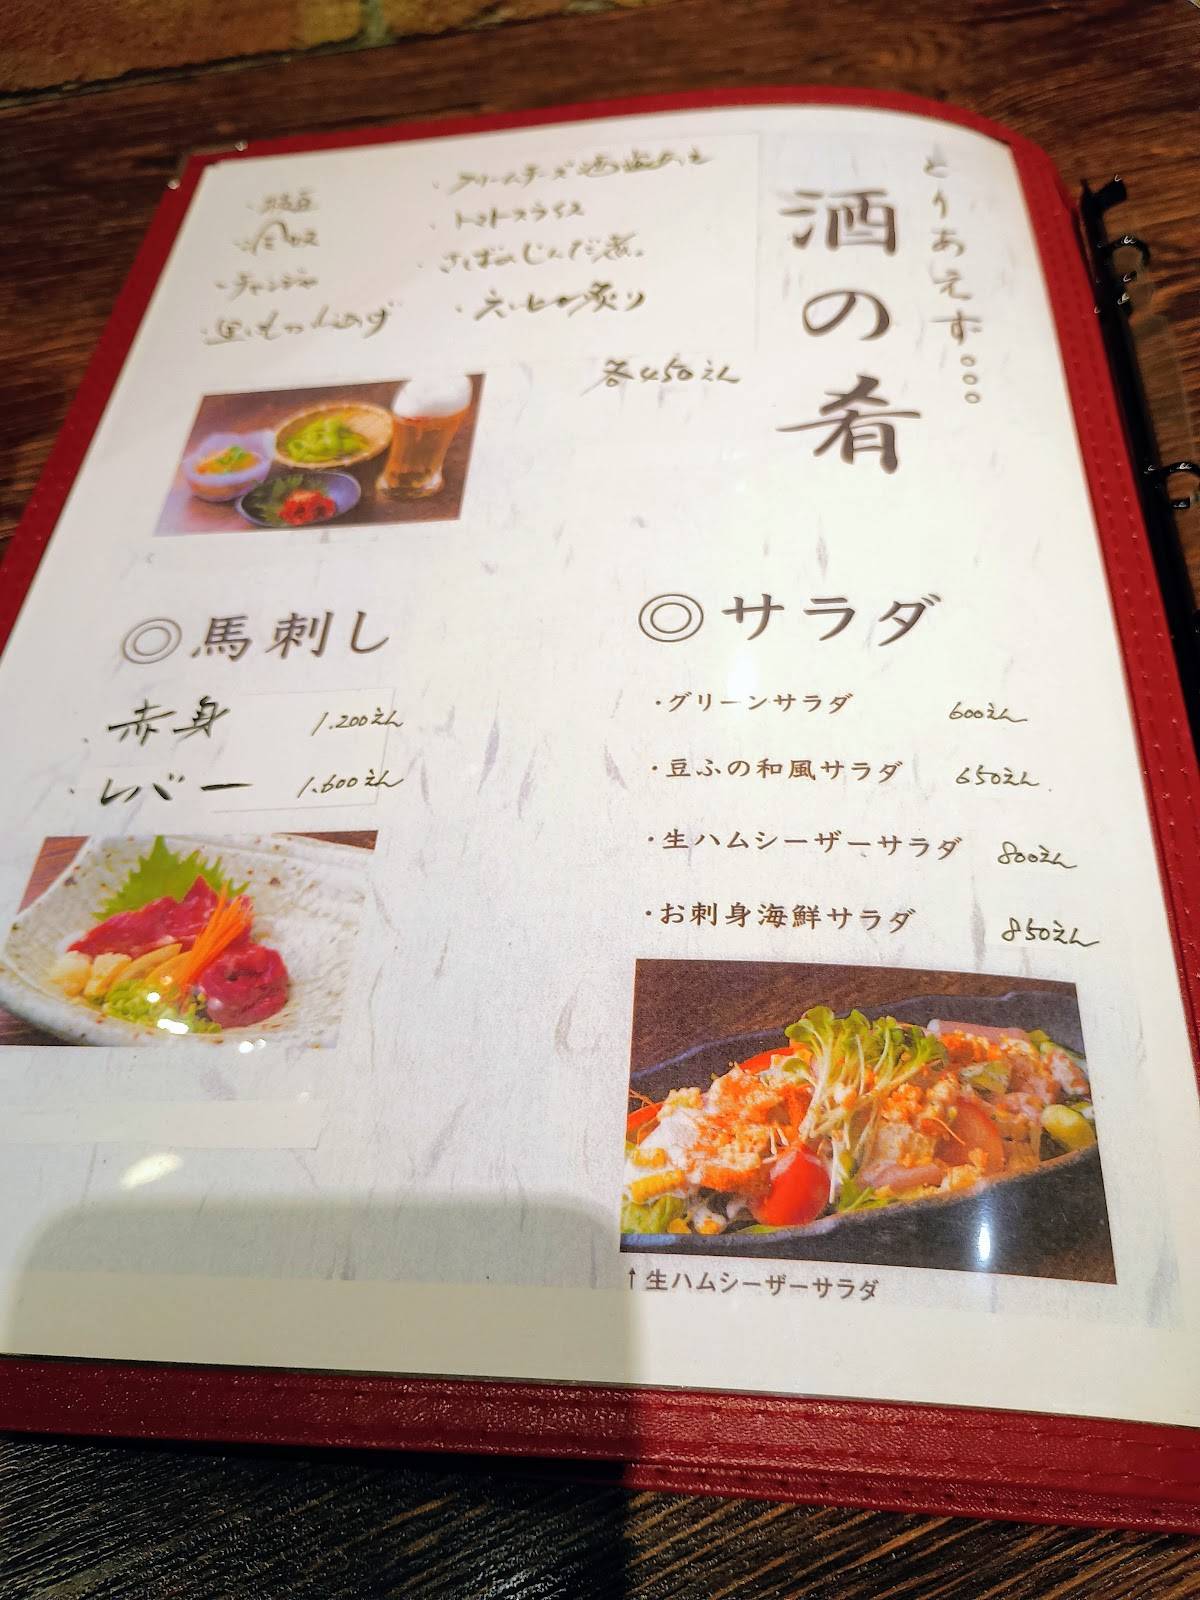 とりあえず。。。
酒の肴
・クリームチーズ酒盗あえ
・トマトスライス
・さばのじんだ煮。
・えいひれ炙り
・枝豆
・チャンジャ
各450えん
◎サラダ
・グリーンサラダ 600えん
・豆ふの和風サラダ 650えん
・生ハムシーザーサラダ 800えん
・お刺身海鮮サラダ 850えん
↑生ハムシーザーサラダ
◎馬刺し
・赤身 1.200えん
・レバー 1.600えん